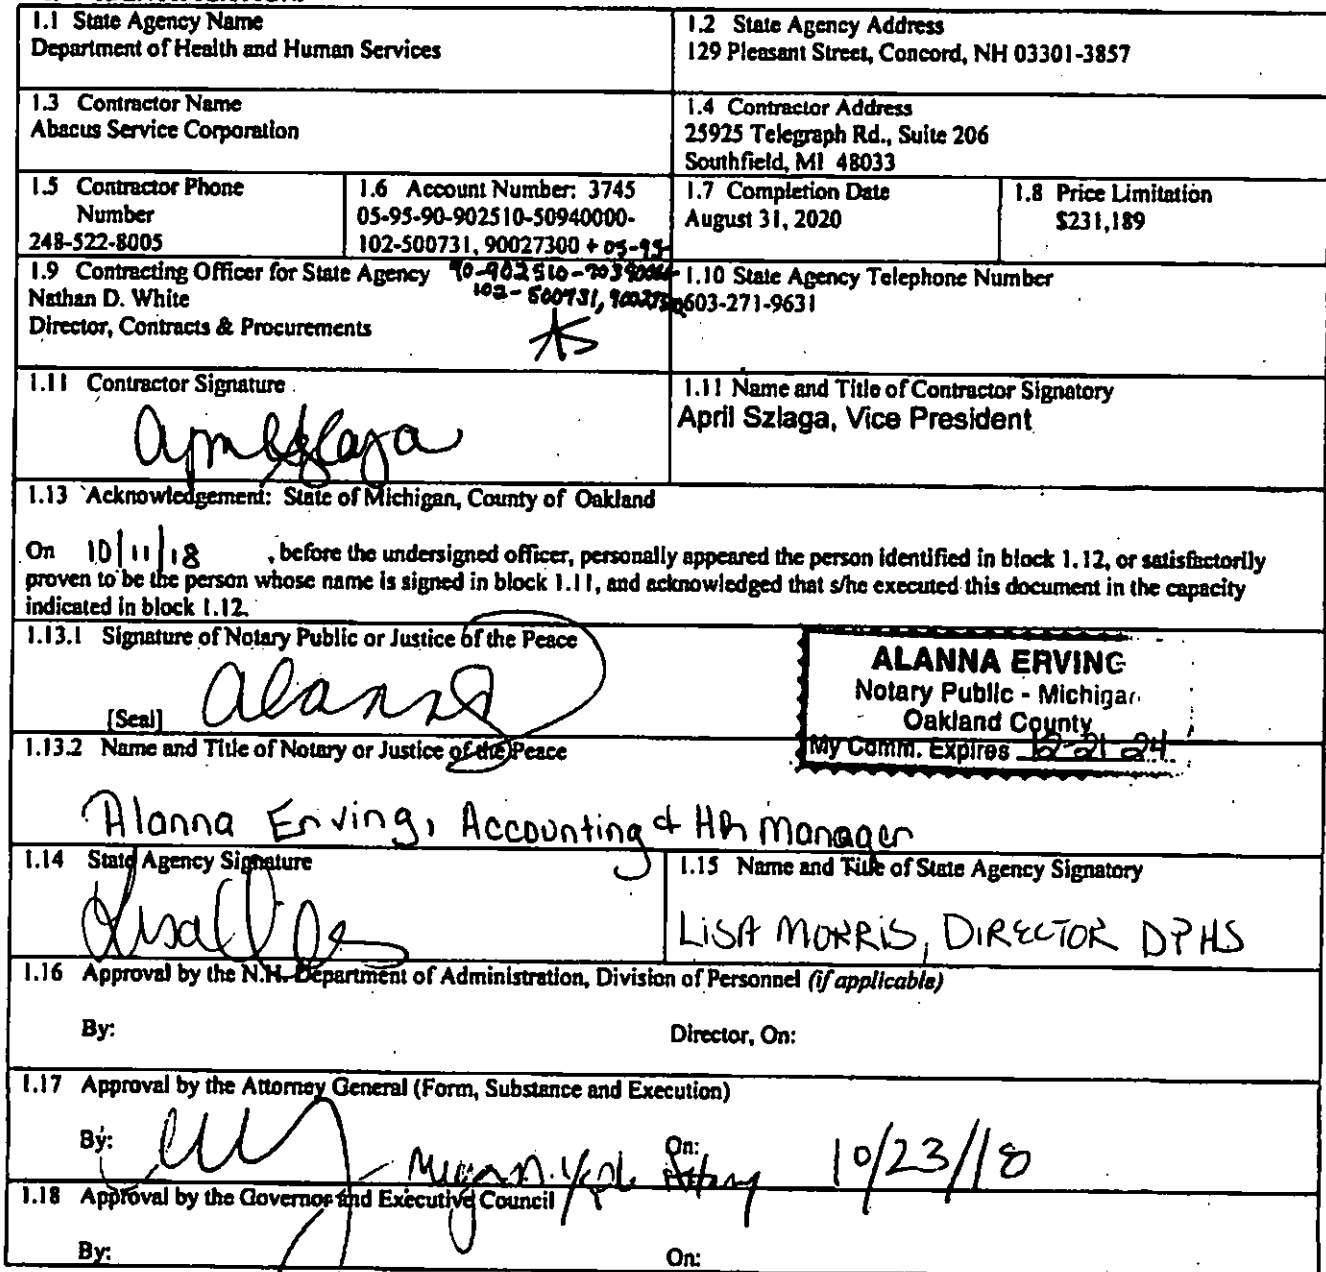 1.1 State Agency Name
Department of Health and Human Services
1.2 State Agency Address
129 Pleasant Street, Concord, NH 03301-3857
1.3 Contractor Name
Abacus Service Corporation
1.4 Contractor Address
25925 Telegraph Rd., Suite 206
Southfield, MI 48033
1.5 Contractor Phone
Number
248-522-8005
1.6 Account Number: 3745
05-95-90-902510-50940000-
102-500731, 90027300 + 05-95-
1.7 Completion Date
August 31, 2020
1.8 Price Limitation
$231,189
1.9 Contracting Officer for State Agency
Nathan D. White
Director, Contracts & Procurements
102-500731,
1.10 State Agency Telephone Number
603-271-9631
1.11 Contractor Signature
1.11 Name and Title of Contractor Signatory
April Szlaga, Vice President
1.13 Acknowledgement: State of Michigan, County of Oakland
On 10/11/18 , before the undersigned officer, personally appeared the person identified in block 1.12, or satisfactorily
proven to be the person whose name is signed in block 1.11, and acknowledged that s/he executed this document in the capacity
indicated in block 1.12.
1.13.1 Signature of Notary Public or Justice of the Peace
[Seal]
ALANNA ERVING
Notary Public - Michigan
Oakland County
My Comm. Expires 12-21-24
1.13.2 Name and Title of Notary or Justice of the Peace
Alanna Erving, Accounting & HR Manager
1.14 State Agency Signature
1.15 Name and Title of State Agency Signatory
LISA MORRIS, DIRECTOR DPHS
1.16 Approval by the N.H. Department of Administration, Division of Personnel (if applicable)
By: Director, On:
1.17 Approval by the Attorney General (Form, Substance and Execution)
By: On: 10/23/18
1.18 Approval by the Governor and Executive Council
By: On: